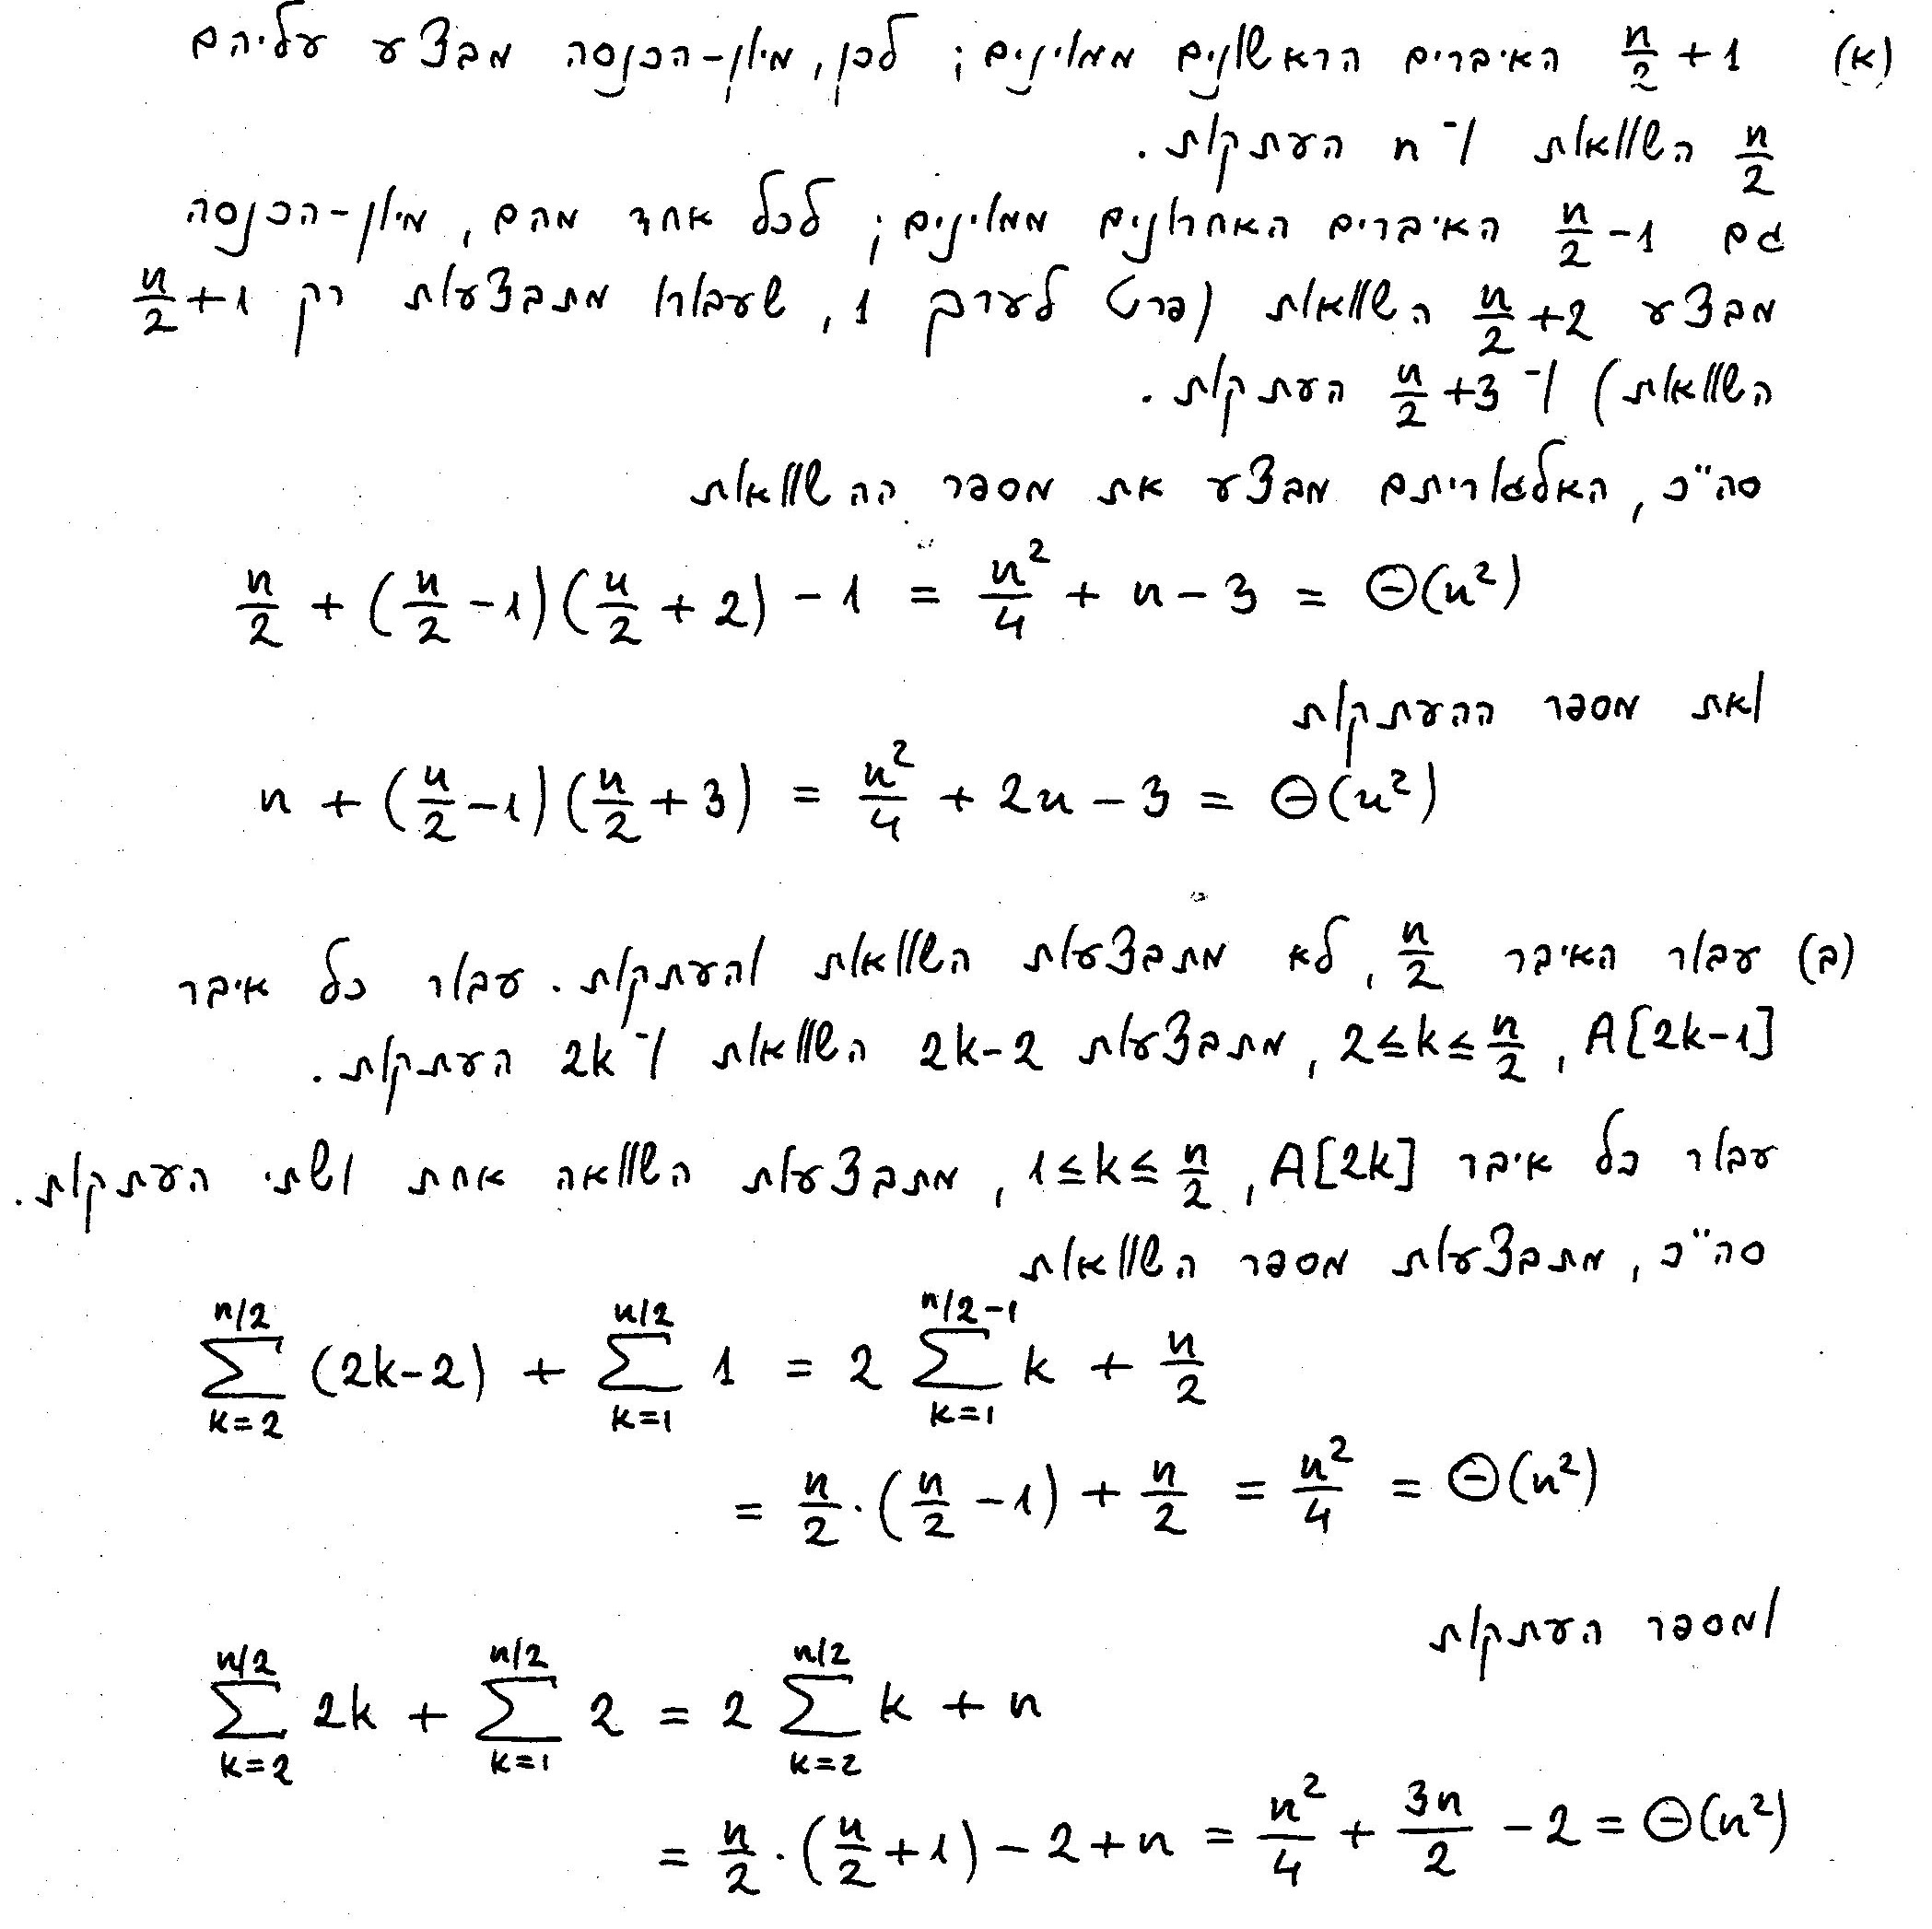 (א) n/2 + 1 האיברים הראשונים ממוינים; לכן, מיון-הכנסה מבצע עליהם
n/2 השוואות ו- n העתקות.
גם n/2 - 1 האיברים האחרונים ממוינים; לכל אחד מהם, מיון-הכנסה
מבצע n/2 + 2 השוואות (פרט לערך 1, שעבורו מתבצעות רק n/2 + 1
השוואות) ו- n/2 + 3 העתקות.
סה"כ, האלגוריתם מבצע את מספר ההשוואות
n/2 + (n/2 - 1)(n/2 + 2) - 1 = n²/4 + n - 3 = Θ(n²)
ואת מספר ההעתקות
n + (n/2 - 1)(n/2 + 3) = n²/4 + 2n - 3 = Θ(n²)
(ב) עבור האיבר n/2, לא מתבצעות השוואות והעתקות. עבור כל איבר
A[2k-1], 2 ≤ k ≤ n/2, מתבצעות 2k-2 השוואות ו- 2k העתקות.
עבור כל איבר A[2k], 1 ≤ k ≤ n/2, מתבצעות השוואה אחת ושתי העתקות.
סה"כ, מתבצעות מספר השוואות
∑_{k=2}^{n/2} (2k-2) + ∑_{k=1}^{n/2} 1 = 2 ∑_{k=1}^{n/2-1} k + n/2
= n/2 · (n/2 - 1) + n/2 = n²/4 = Θ(n²)
ומספר העתקות
∑_{k=2}^{n/2} 2k + ∑_{k=1}^{n/2} 2 = 2 ∑_{k=2}^{n/2} k + n
= n/2 · (n/2 + 1) - 2 + n = n²/4 + 3n/2 - 2 = Θ(n²)